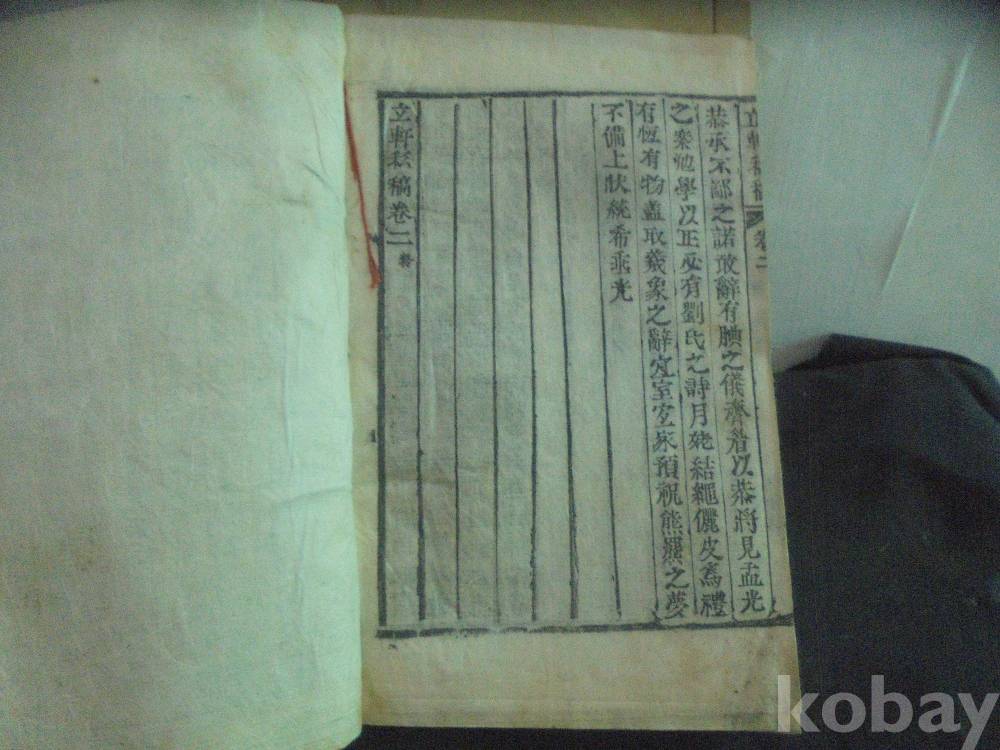 立軒私稿 卷二
恭承不鄙之諾敢辭有腆之儀齊眉以恭將見孟光
之案 學以正必有劉氏之詩月姥結繩儷皮爲禮
有恆有物盍取羲象之辭宜室宜家預祝熊羆之夢
不備上狀統希乖光
立軒私稿卷二 終
kobay